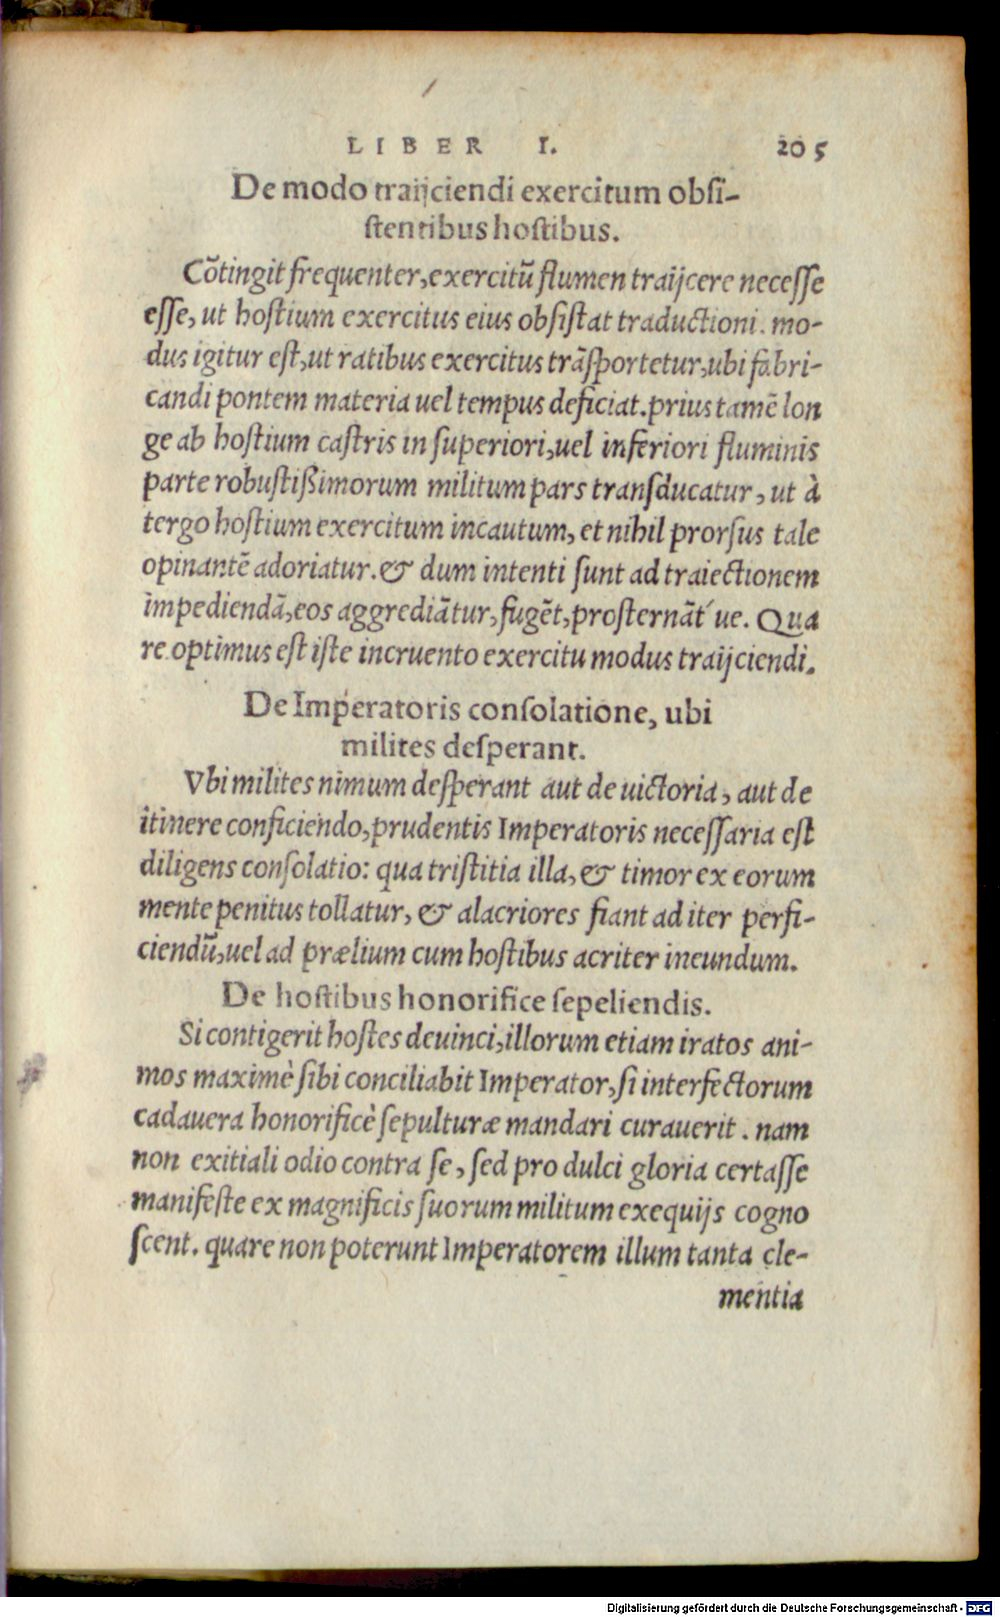 LIBER I. 205
De modo traijciendi exercitum obsi-
stentibus hostibus.
Cõtingit frequenter, exercitũ flumen traijcere necesse
esse, ut hostium exercitus eius obsistat traductioni. mo-
dus igitur est, ut ratibus exercitus trãsportetur, ubi fabri-
candi pontem materia uel tempus deficiat. prius tamẽ lon
ge ab hostium castris in superiori, uel inferiori fluminis
parte robustißimorum militum pars transducatur, ut à
tergo hostium exercitum incautum, et nihil prorsus tale
opinantẽ adoriatur. & dum intenti sunt ad traiectionem
impediendã, eos aggrediãtur, fugẽt, prosternãt´ue. Qua
re optimus est iste incruento exercitu modus traijciendi.
De Imperatoris consolatione, ubi
milites desperant.
Vbi milites nimum desperant aut de uictoria, aut de
itinere conficiendo, prudentis Imperatoris necessaria est
diligens consolatio: qua tristitia illa, & timor ex eorum
mente penitus tollatur, & alacriores fiant ad iter perfi-
ciendũ, uel ad prælium cum hostibus acriter ineundum.
De hostibus honorifice sepeliendis.
Si contigerit hostes deuinci, illorum etiam iratos ani-
mos maximè sibi conciliabit Imperator, si interfectorum
cadauera honorificè sepulturæ mandari curauerit. nam
non exitiali odio contra se, sed pro dulci gloria certasse
manifeste ex magnificis suorum militum exequijs cogno
scent. quare non poterunt Imperatorem illum tanta cle-
mentia
Digitalisierung gefördert durch die Deutsche Forschungsgemeinschaft - DFG